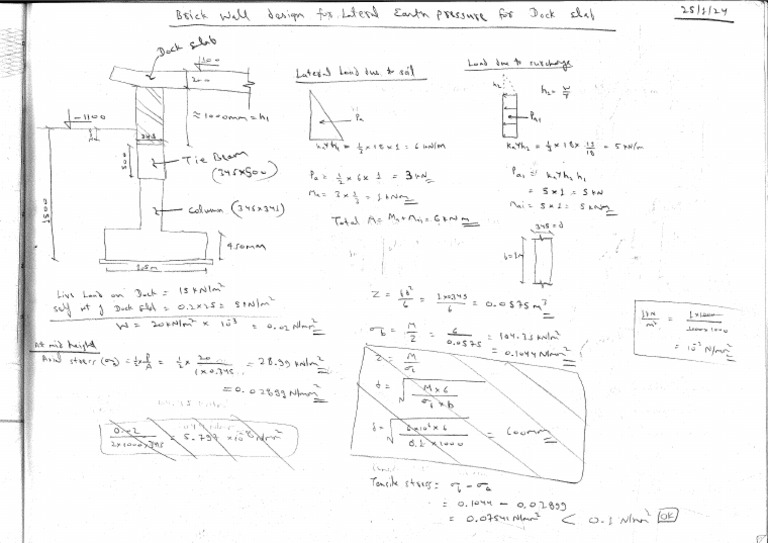 Brick Wall design for Lateral Earth pressure for Dock slab
25/1/24
Dock slab
200
-1100
≈1000mm = h₁
345
500
Tie Beam
(345x500)
Column (345x345)
450mm
Lateral Load due to soil
Pa
kaγh₁ = 1/3 x 18 x 1 = 6 kN/m
Pa = 1/2 x 6 x 1 = 3 kN
Ma = 3 x 1/3 = 1 kNm
Total M = M₁ + Ma₁ = 6 kNm
Load due to surcharge
h₂
h₂ = w/γ
Pa₁
kaγh₂ = 1/3 x 18 x 15/18 = 5 kN/m
Pa₁ = kaγh₂h₁
= 5x1 = 5 kN
Ma₁ = 5x1 = 5 kNm
345 = d
b = 1m
Live Load on Dock = 15 kN/m²
Self wt of Dock slab = 0.2x25 = 5 kN/m²
W = 20 kN/m² x 10⁻³ = 0.02 N/mm²
At mid height
Axial stress (σa) = 1/2 P/A = 1/2 x 20/(1x0.345) = 28.99 kN/m²
= 0.02899 N/mm²
0.02/(2x1000x345) = 5.797 x10⁻⁸ N/mm²
Z = bd²/6 = 1x0.345/6 = 0.0575 m³
σb = M/Z = 6/0.0575 = 104.35 kN/m²
= 0.1044 N/mm²
Z = M/σb
d = √(M x 6/(σb x b))
d = √(6x10⁶x6/(0.1x1000)) = 600mm
1kN/m² = 1x1000/(1000x1000)
= 10⁻³ N/mm²
Tensile stress = σb - σa
= 0.1044 - 0.02899
= 0.07541 N/mm² < 0.1 N/mm² OK